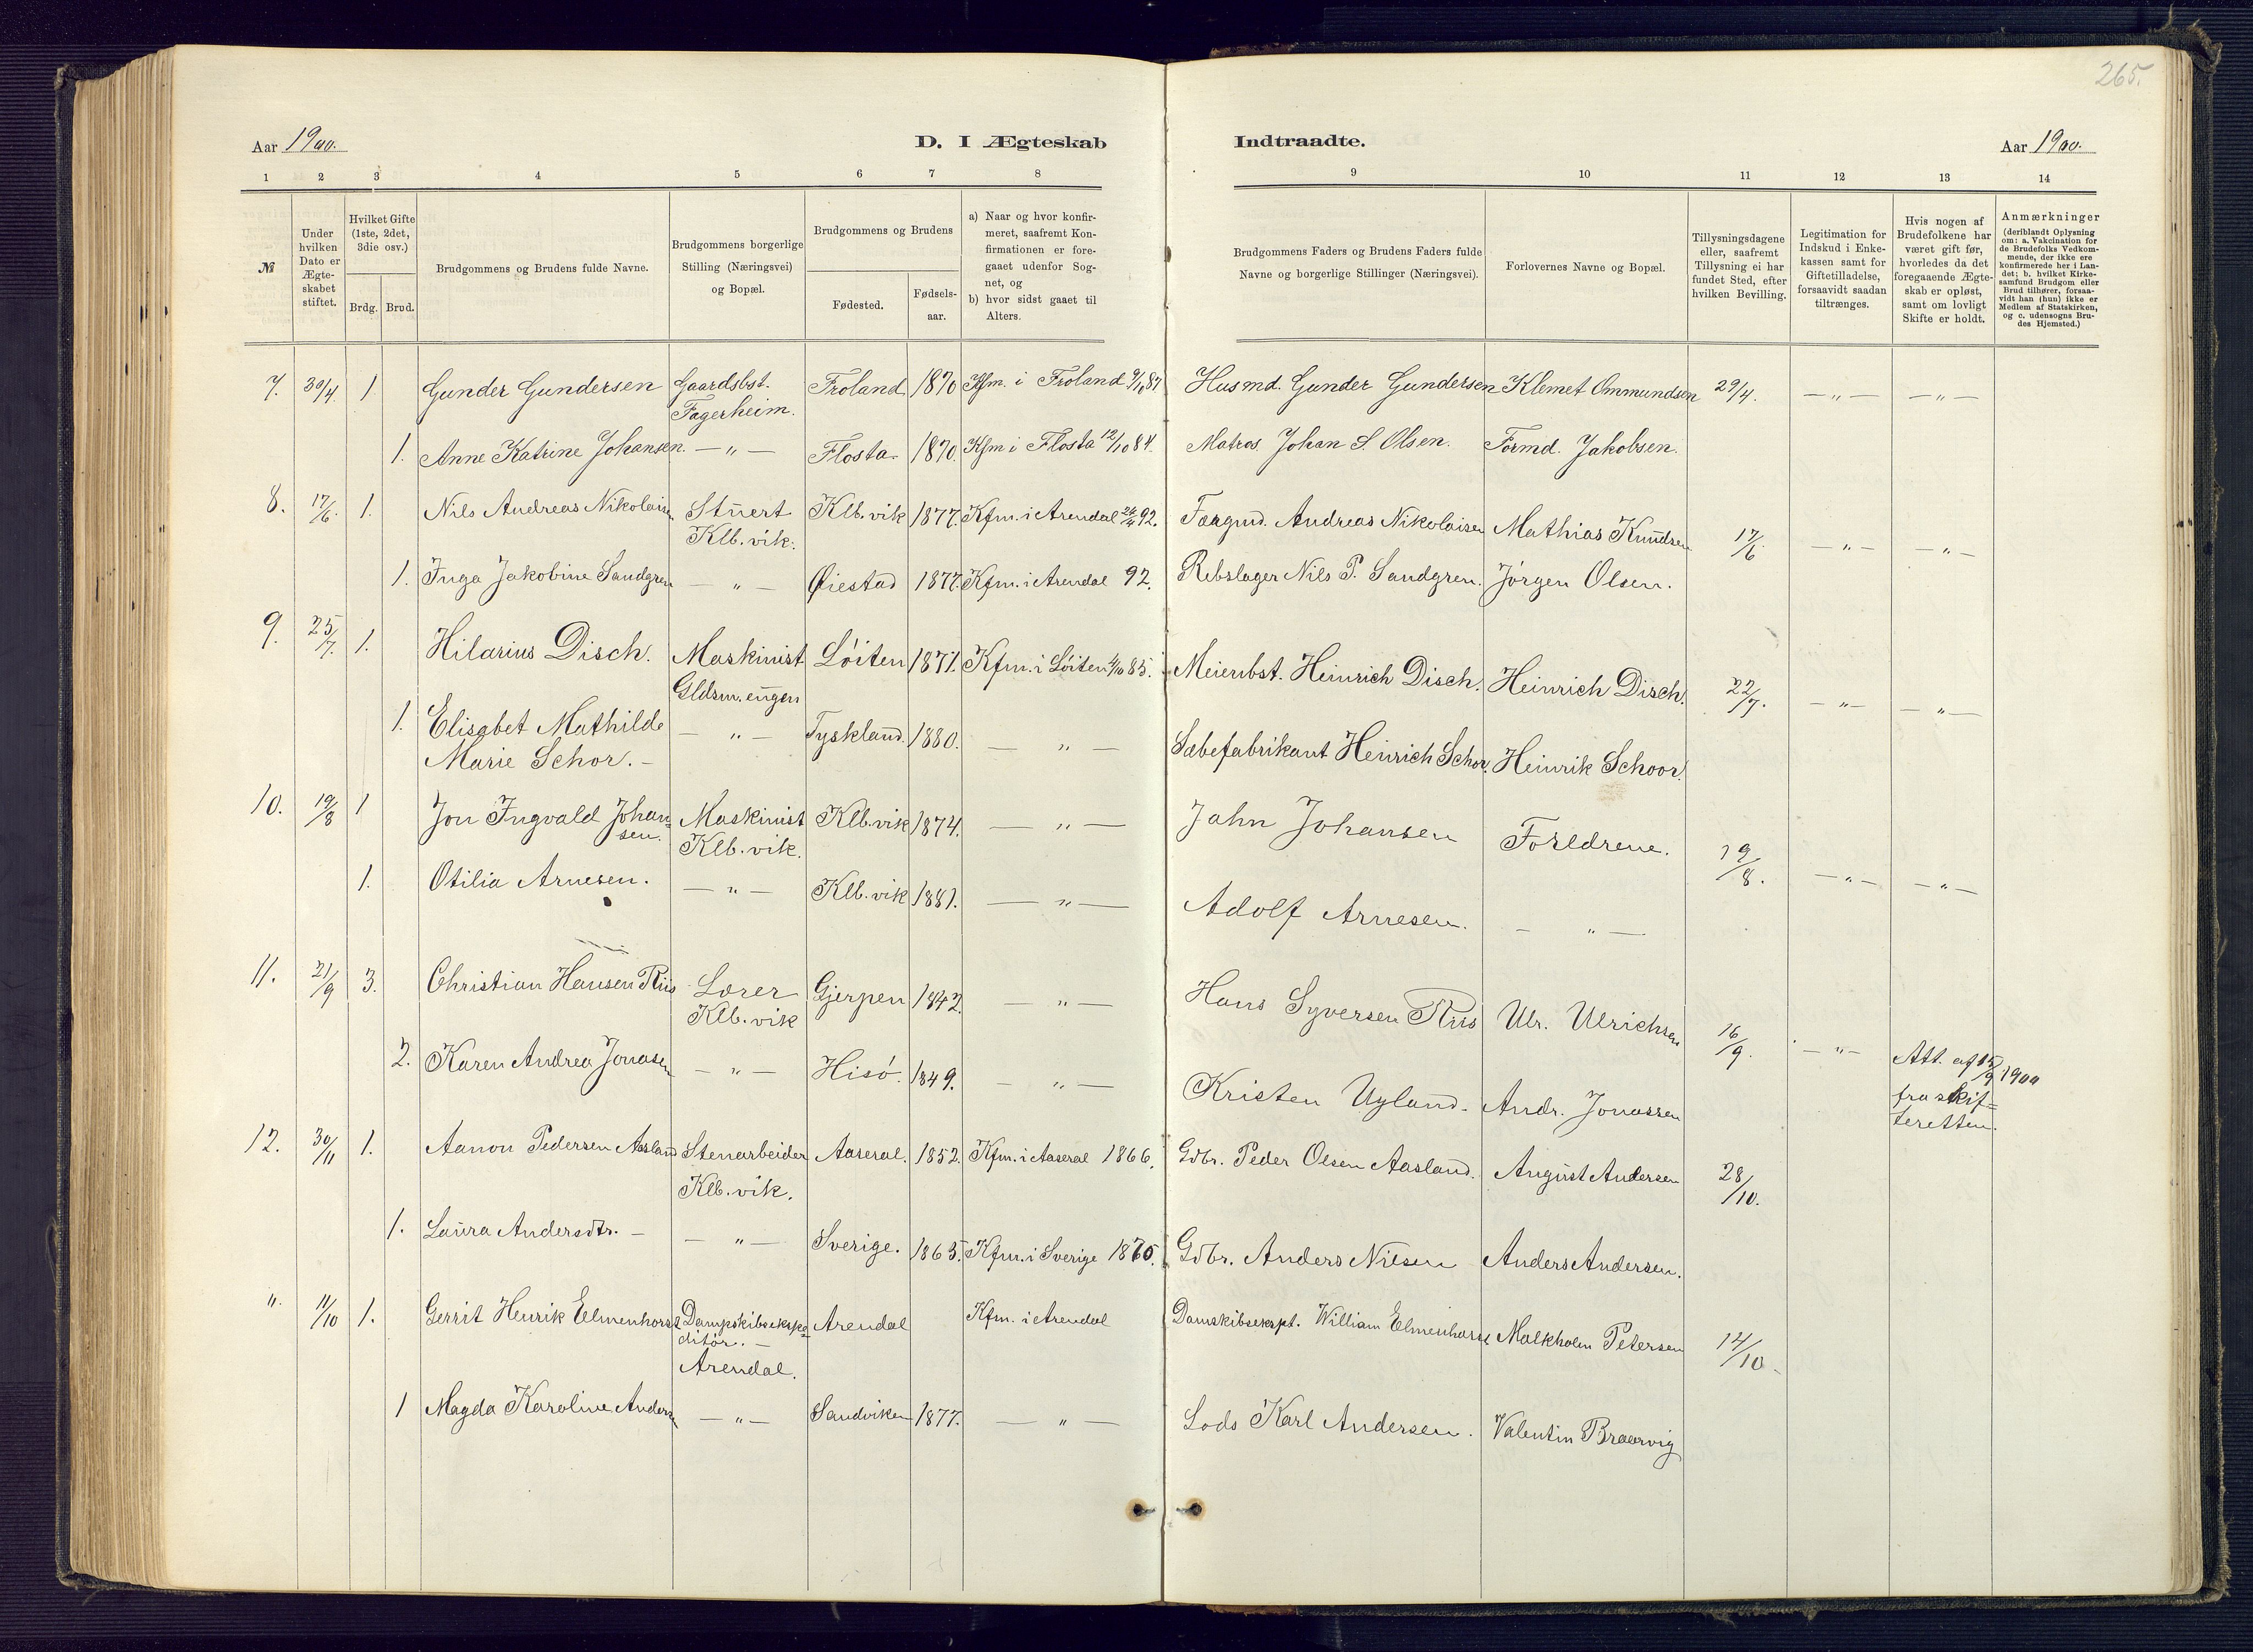 265.
Aar 1900.
D. I Ægteskab
Indtraadte.
Aar 1900.
1 2 3 4 5 6 7 8 9 10 11 12 13 14
№
Under
hvilken
Dato er
Ægte-
skabet
stiftet.
Hvilket Gifte
(1ste, 2det,
3die osv.)
Brdg. Brud.
Brudgommens og Brudens fulde Navne.
Brudgommens borgerlige
Stilling (Næringsvei)
og Bopæl.
Brudgommens og Brudens
Fødested.
Fødsels-
aar.
a) Naar og hvor konfir-
meret, saafremt Kon-
firmationen er fore-
gaaet udenfor Sog-
net, og
b) hvor sidst gaaet til
Alters.
Brudgommens Faders og Brudens Faders fulde
Navne og borgerlige Stillinger (Næringsvei).
Forlovernes Navne og Bopæl.
Tillysningsdagene
eller, saafremt
Tillysning ei har
fundet Sted, efter
hvilken Bevilling.
Legitimation for
Indskud i Enke-
kassen samt for
Giftetilladelse,
forsaavidt saadan
tiltrænges.
Hvis nogen af
Brudefolkene har
været gift før,
hvorledes da det
foregaaende Ægte-
skab er opløst,
samt om lovligt
Skifte er holdt.
Anmærkninger
(deriblandt Oplysning
om: a. Vakcination for
de Brudefolks Vedkom-
mende, der ikke ere
konfirmerede her i Lan-
det; b. hvilket Kirke-
samfund Brudgom eller
Brud tilhører, forsaa-
vidt han (hun) ikke er
Medlem af Statskirken,
og c. udensogns Bru-
des Hjemsted.)
7. 30/4 1 Gunder Gundersen Gaardsbst. Froland 1870 Kfm. i Froland 9/10 87 Husmd. Gunder Gundersen Klemet Ommundsen 29/4. — " — — " —
Fagerheim.
1. Anne Katrine Johansen. — " — Flosta 1870. Kfm i Flosta 12/10 84. Matros Johan S. Olsen. Formd. Jakobsen.
8. 17/6. 1. Nils Andreas Nikolaisen Stuert Klb. vik 1877. Kfm. i Arendal 92. Andreas Nikolaisen Mathias Knudsen 17/6 — " — — " —
Klb. vik.
1. Inga Jakobine Sandgren — " — Øiestad 1877. Kfm. i Arendal 92. Rebslager Nils P. Sandgren. Jørgen Olsen.
9. 25/7. 1. Hilarius Disch. Maskinist Løiten 1871. Kfm. i Løiten 4/10 85. Meieribst. Heinrich Disch. Heinrich Disch. 22/7. — " — — " —
Gldsm. engen
1. Elisabet Mathilde — " — Tyskland. 1880. — " — Sæbefabrikant Heinrich Schor. Heinrik Schoor.
Marie Schor. —
10. 19/8 1 Jon Ingvald Johan- Maskinist Klb. vik 1874. — " — Jahn Johansen Forldrene. 19/8. — " — — " —
sen. Klb. vik.
1. Otilia Arnesen. — " — Klb. vik 1881. — " — Adolf Arnesen. — " —
11. 21/9 3. Christian Hansen Riis Lærer Gjerpen 1842. — " — Hans Syversen Riis Ulr. Ulrichsen 16/9. — " — Att. af 15/9 1900
Klb. vik fra skif-
teretten.
2. Karen Andrea Jonasen — " — Hisø. 1849. — " — Kristen Ugland. Andr. Jonassen
12. 30/11 1. Aanon Pedersen Aasland Stenarbeider Aaseral. 1852. Kfm. i Aaseral 1866. Gdbr. Peder Olsen Aasland. August Andersen 28/10.
Klb. vik.
1. Laura Andersdtr. — — " — Sverige. 1863. Kfm. i Sverige Gdbr. Anders Nilsen Anders Andersen.
". 11/10 1. Gerrit Henrik Elmenhorst Dampskibsekspe- Arendal Kfm. i Arendal Damskibsekspt. William Elmenhorst Malkholm Petersen 14/10
ditør. —
Arendal.
1 Magda Karoline Andersen — " — Sandviken 1877. — " — Lods Karl Andersen. Valentin Brærvig